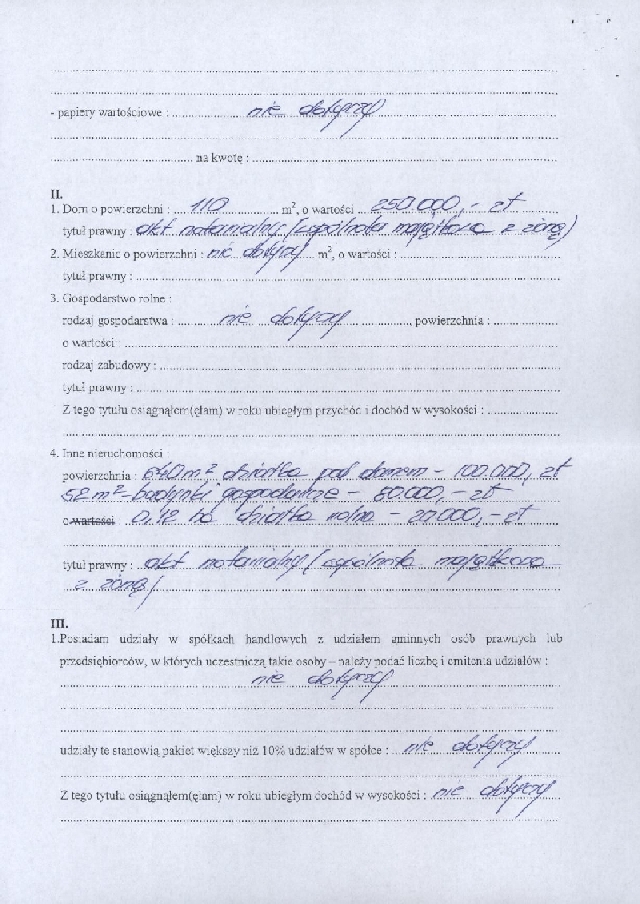 - papiery wartościowe : nie dotyczy
na kwotę :
II.
1. Dom o powierzchni : 110 m², o wartości 250.000,- zł
tytuł prawny : akt notarialny (wspólnota majątkowa z żoną)
2. Mieszkanie o powierzchni : nie dotyczy m², o wartości :
tytuł prawny :
3. Gospodarstwo rolne :
rodzaj gospodarstwa : nie dotyczy powierzchnia :
o wartości :
rodzaj zabudowy :
tytuł prawny :
Z tego tytułu osiągnąłem(ęłam) w roku ubiegłym przychód i dochód w wysokości :
4. Inne nieruchomości
powierzchnia : 640 m² działka pod domem - 100.000, zł
52 m² - budynki gospodarcze - 60.000,- zł
o wartości 0,12 ha działka rolna - 20.000,- zł
tytuł prawny : akt notarialny (wspólnota majątkowa
z żoną)
III.
1.Posiadam udziały w spółkach handlowych z udziałem gminnych osób prawnych lub
przedsiębiorców, w których uczestniczą takie osoby – należy podać liczbę i emitenta udziałów :
nie dotyczy
udziały te stanowią pakiet większy niż 10% udziałów w spółce : nie dotyczy
Z tego tytułu osiągnąłem(ęłam) w roku ubiegłym dochód w wysokości : nie dotyczy